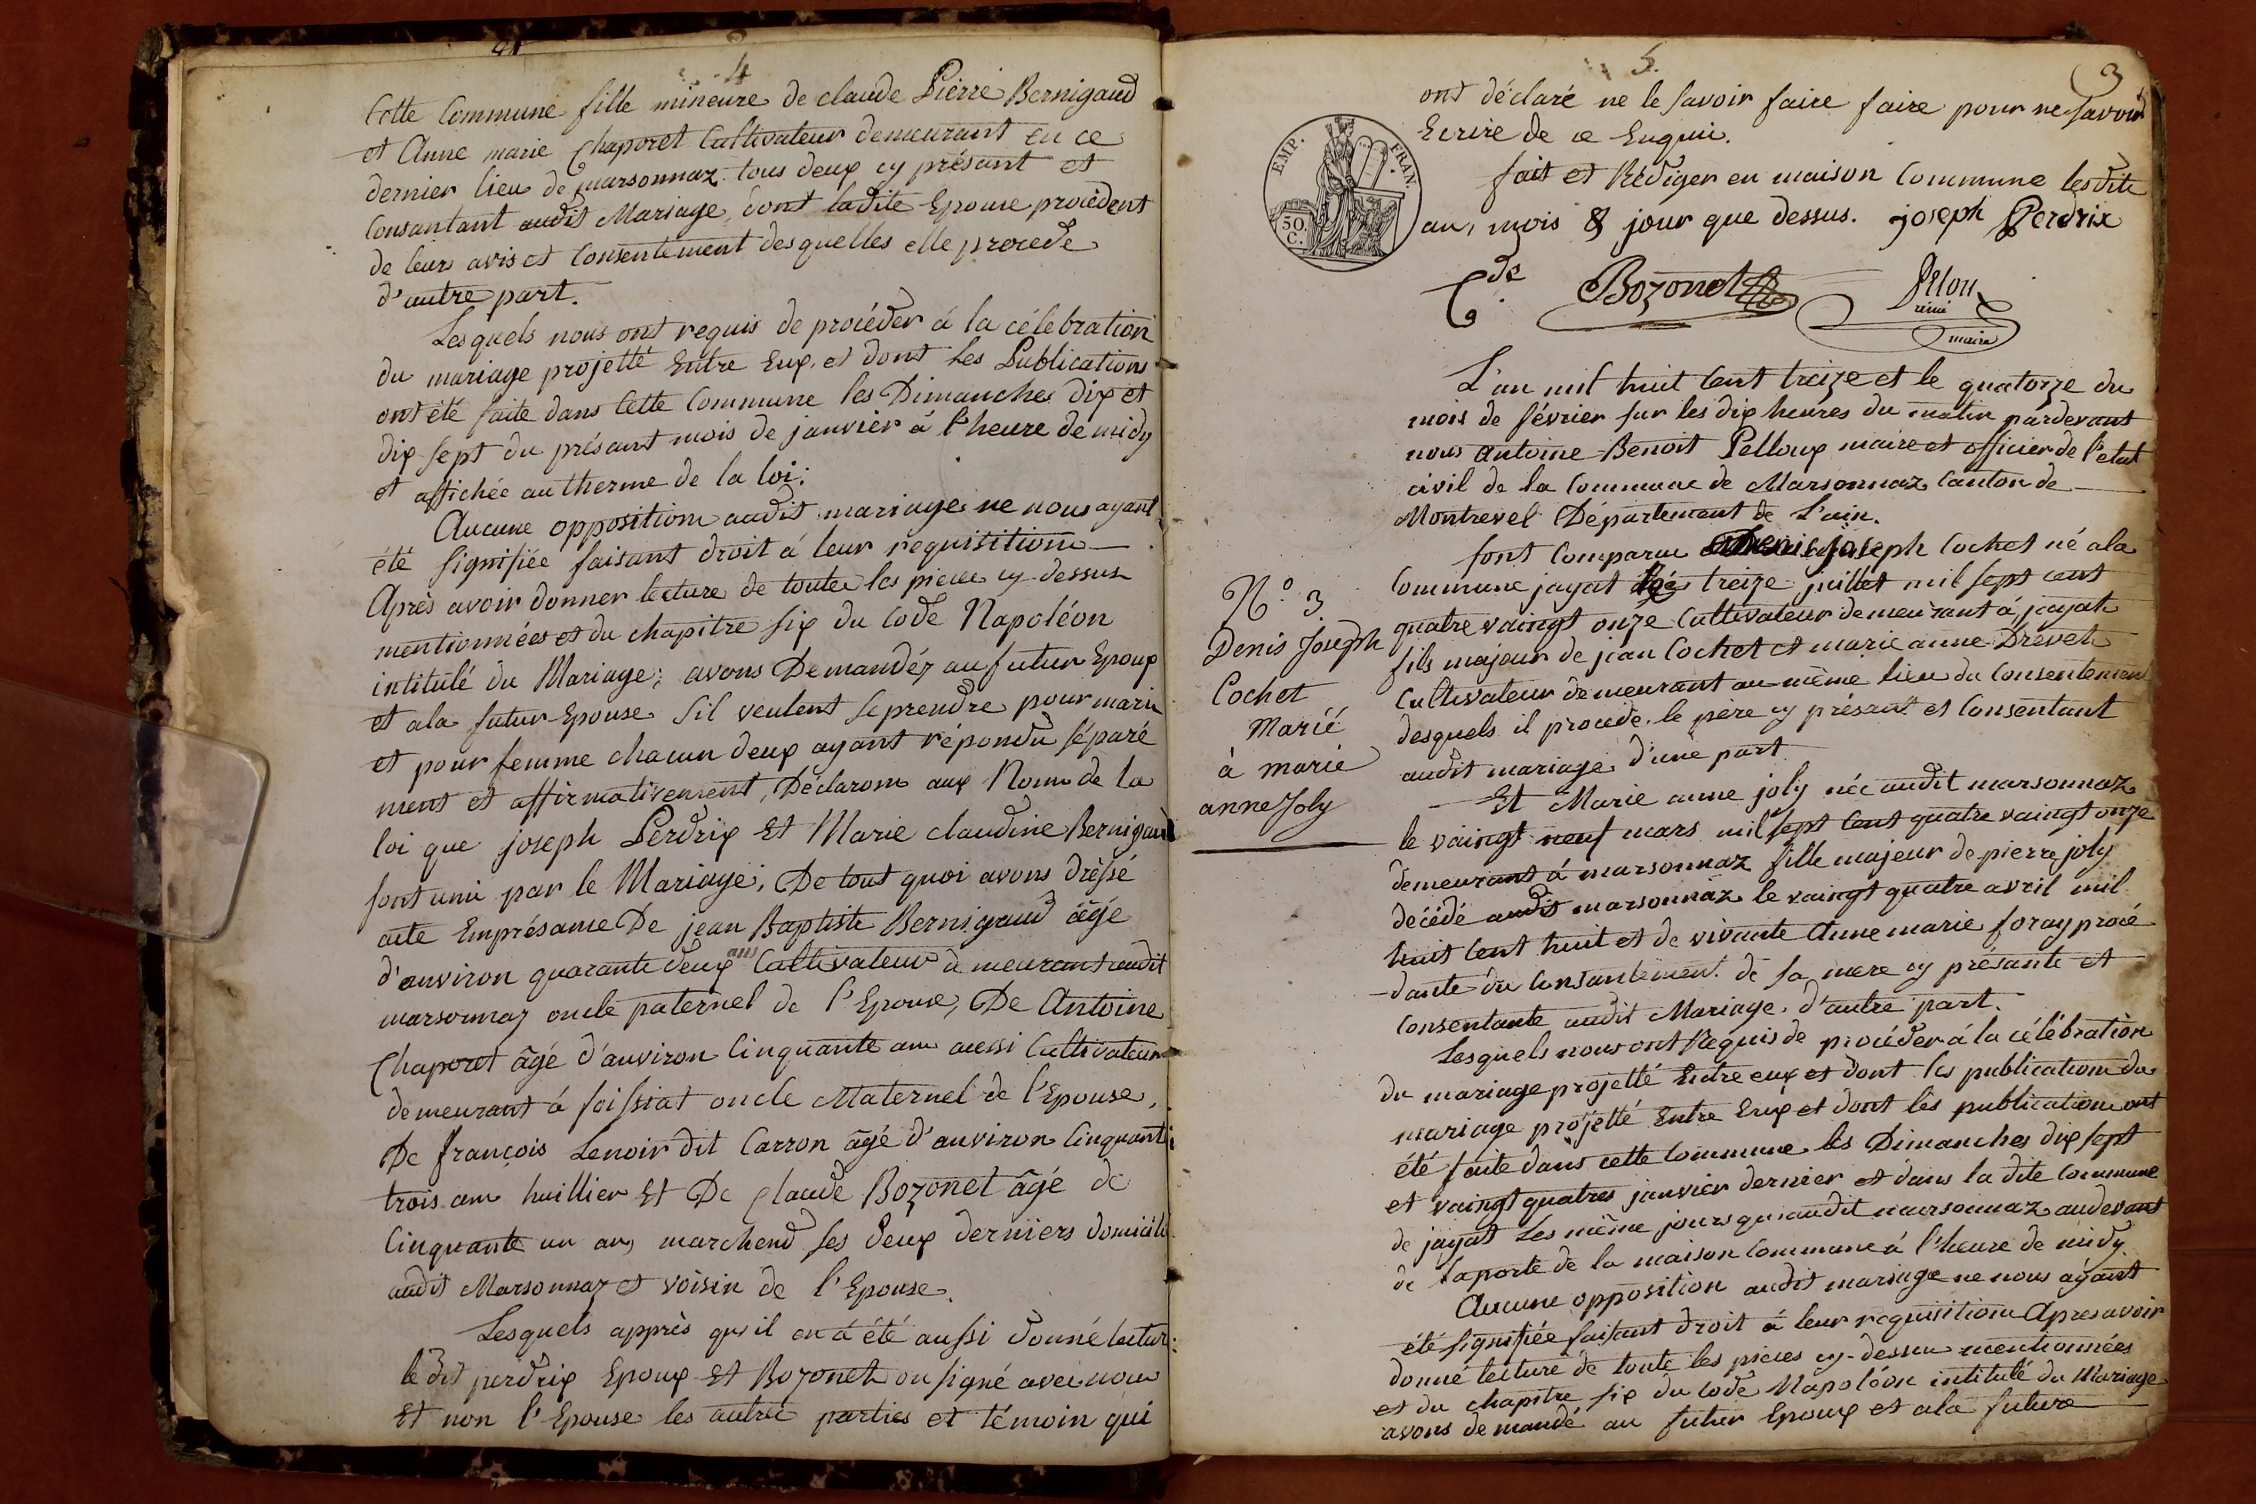 4
Cette Commune fille mineure de claude Pierre Bernigaud
et Anne marie Chaporet Cultivateur demeurant en ce
dernier lieu de marsonnaz tous deux cy présant et
Consantant audit Mariage, dont ladite Epouse procèdent
de leurs avis et Consentement desquelles elle procede
d'autre part.
Lesquels nous ont requis de procéder á la célebration
du mariage projetté Entre Eux, et dont les Publications
ont été faite dans Cette Commune les Dimanches dix et
dix sept du présant mois de janvier á l'heure de midy
et affichée au therme de la loi.
Aucune opposition audit mariage ne nous ayant
été signifiée faisant droit á leur requisition
Après avoir donner lecture de toutes les pieces cy-dessus
mentionnées et du chapitre six du Code Napoléon
intitulé du Mariage; avons Demandéz au futur Epoux
et a la futur Epouse s'il veulent se prendre pour mari
et pour femme chacun deux ayant répondu séparé
ment et affirmativement, Déclarons aux Nom de la
loi que joseph Perdrix Et Marie claudine Bernigaud
sont uni par le Mariage; De tout quoi avons dréssé
acte Emprésance De jean Baptiste Bernigaud âgé
d'anviron quarante deux ans Cultivateur demeurant audit
marsonnaz oncle paternel de l'Epouse, De Antoine
Chaporet âgé d'anviron Cinquante ans aussi Cultivateur
demeurant á foissiat oncle Maternel de l'Epouse,
De françois Lenoir dit Carron âgé d'anviron Cinquante
trois ans huillier Et De Claude Bozonet âgé de
Cinquante un ans marchend ses deux derniers domicilié
audit Marsonnaz et voisin de l'Epouse.
Lesquels apprès qu'il en á été aussi donné lecture
le dit perdrix Epoux Et Bozonet on signé avec nous
Et non l'Epouse les autres parties et témoin qui
5.
3
ont déclaré ne le savoir faire faire pour ne savoir
Ecrire de ce Enquis.
fait et Rédiger en maison Commune lesdits
an, mois & jour que dessus. joseph Perdrix
EMP. FRAN.
50. C.
Cde Bozonet
maire
L'an mil huit Cent treize et le quatorze du
mois de février sur les dix heures du matin pardevant
nous antoine Benoit Pelloux maire et officier de l'etat
civil de la Commune de Marsonnaz Canton de
Montrevel Département de L'ain.
sont Comparue Denis joseph Cochet né a la
Commune jayat le treize juillet mil sept cent
quatre vaingt onze Cultivateur demeurant á jayat
fils majeur de jean Cochet et marie anne Drevet
Cultivateur demeurant au même lieu du Consentement
desquels il procède. le père cy présant et Consentant
audit mariage d'une part
N.o 3
Denis Joseph
Cochet
Marié
à marie
anne Joly
Et Marie anne joly née audit marsonnaz
le vaingt neuf mars mil sept Cent quatre vaingt onze
demeurant á marsonnaz fille majeur de pierre joly
décédé audit marsonnaz le vaingt quatre avril mil
huit Cent huit et de vivante Anne marie foray procé
dante du Consantement de sa mere cy présante et
Consentante audit Mariage. d'autre part.
Lesquels nous ont Requis de procéder á la célébration
du mariage projetté Entre eux et dont les publication du
mariage projetté Entre Eux et dont lés publication ont
été faite dans cette Commune lés Dimanches dix sept
et vaingt quatres janvier dernier et dans la dite Commune
de jayat Les même jours qu'audit marsonnaz au devant
de la porte de la maison Commune á l'heure de midy.
Aucune opposition audit mariage ne nous ayant
été signifiée faisant droit á leur requisition Apres avoir
donné lecture de toute les pieces cy-dessus mentionnées
et du chapitre six du Code Napoléon intitulé du Mariage
avons demandé au futur Epoux et a la future